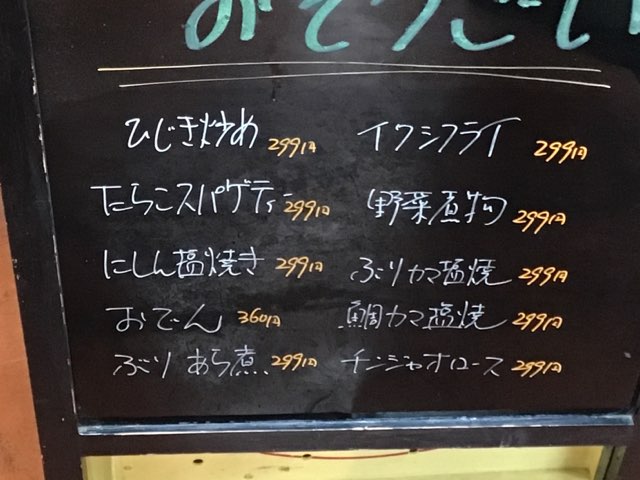 おそうざい
ひじき炒め 299円
たらこスパゲティー 299円
にしん塩焼き 299円
おでん 360円
ぶりあら煮 299円
イワシフライ 299円
野菜煮物 299円
ぶりカマ塩焼 299円
鯛カマ塩焼 299円
チンジャオロース 299円